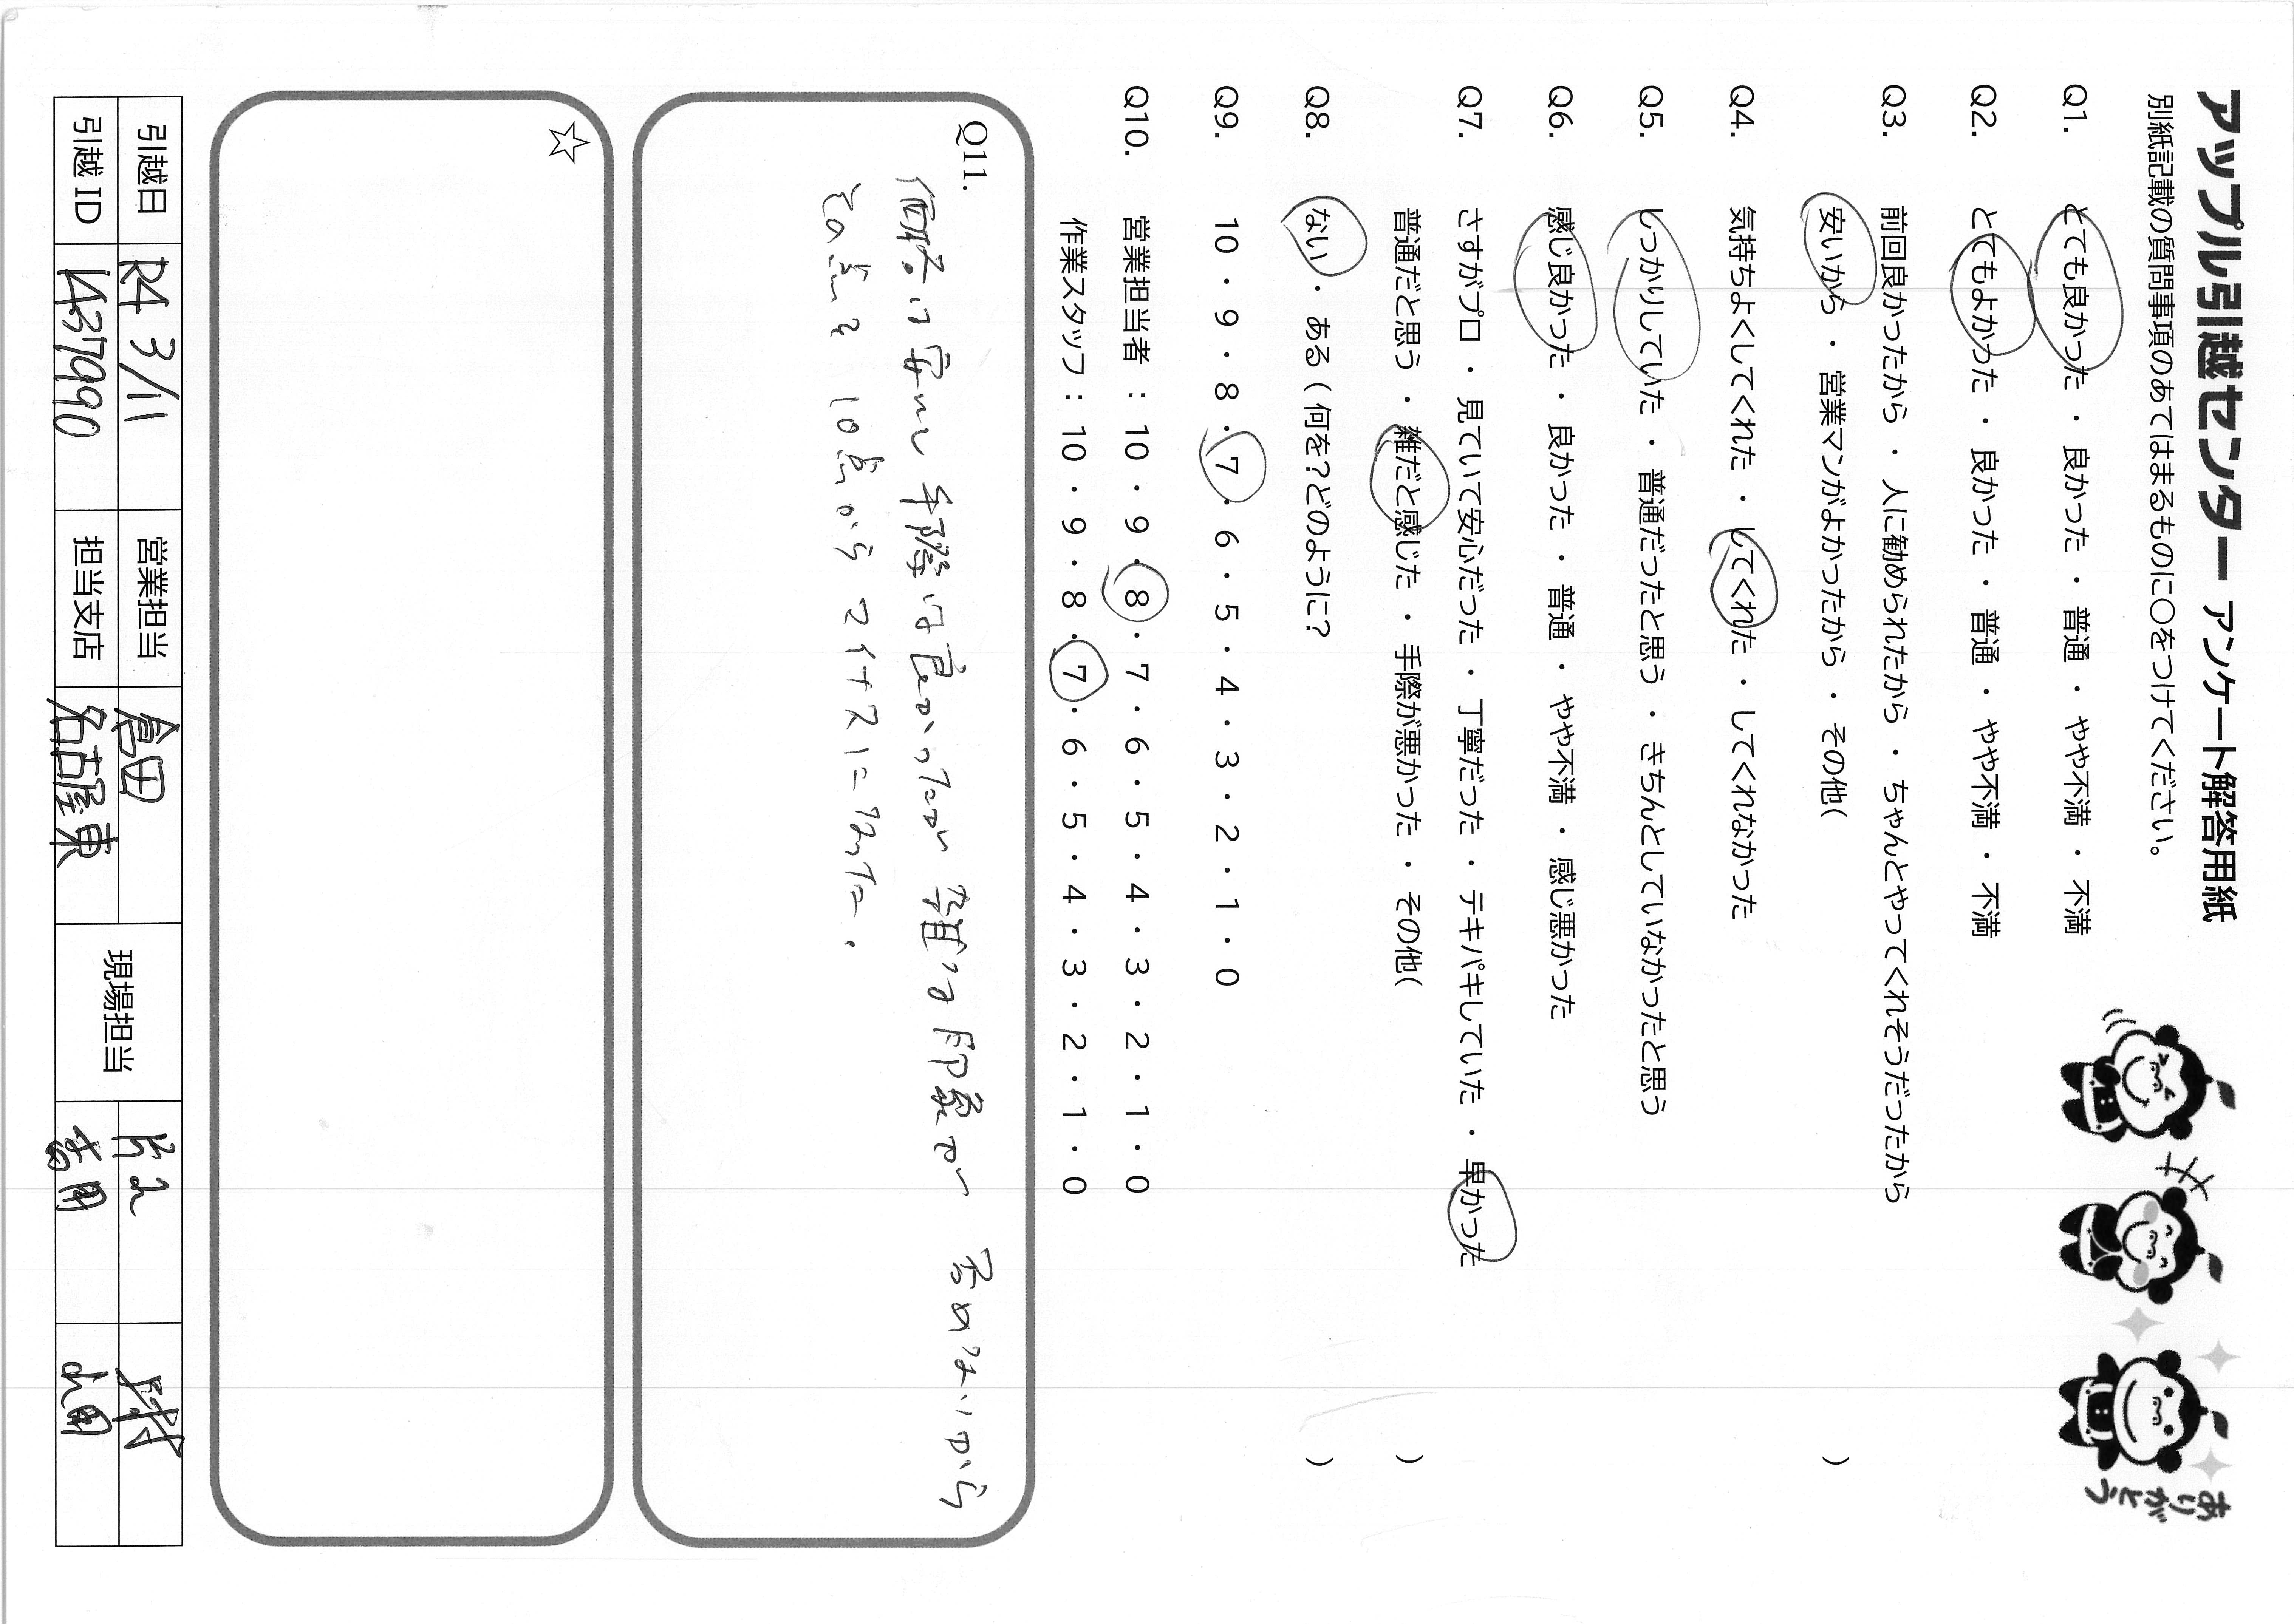 アップル引越センター アンケート解答用紙
別紙記載の質問事項のあてはまるものに○をつけてください。
Q1. とても良かった ・ 良かった ・ 普通 ・ やや不満 ・ 不満
Q2. とてもよかった ・ 良かった ・ 普通 ・ やや不満 ・ 不満
Q3. 前回良かったから ・ 人に勧められたから ・ ちゃんとやってくれそうだったから
安いから ・ 営業マンがよかったから ・ その他( )
Q4. 気持ちよくしてくれた ・ してくれた ・ してくれなかった
Q5. しっかりしていた ・ 普通だったと思う ・ きちんとしていなかったと思う
Q6. 感じ良かった ・ 良かった ・ 普通 ・ やや不満 ・ 感じ悪かった
Q7. さすがプロ ・ 見ていて安心だった ・ 丁寧だった ・ テキパキしていた ・ 早かった
普通だと思う ・ 雑だと感じた ・ 手際が悪かった ・ その他( )
Q8. ない ・ ある ( 何を？どのように？ )
Q9. 10 ・ 9 ・ 8 ・ 7 ・ 6 ・ 5 ・ 4 ・ 3 ・ 2 ・ 1 ・ 0
Q10. 営業担当者 : 10 ・ 9 ・ 8 ・ 7 ・ 6 ・ 5 ・ 4 ・ 3 ・ 2 ・ 1 ・ 0
作業スタッフ : 10 ・ 9 ・ 8 ・ 7 ・ 6 ・ 5 ・ 4 ・ 3 ・ 2 ・ 1 ・ 0
Q11.
価格は安いし手際は良かったが 雑な印象が 否めないから
その点を 10点から マイナスになった。
☆
引越日 R4 3/11 営業担当 倉田 現場担当
引越 ID 担当支店 名古屋東
ありがとう